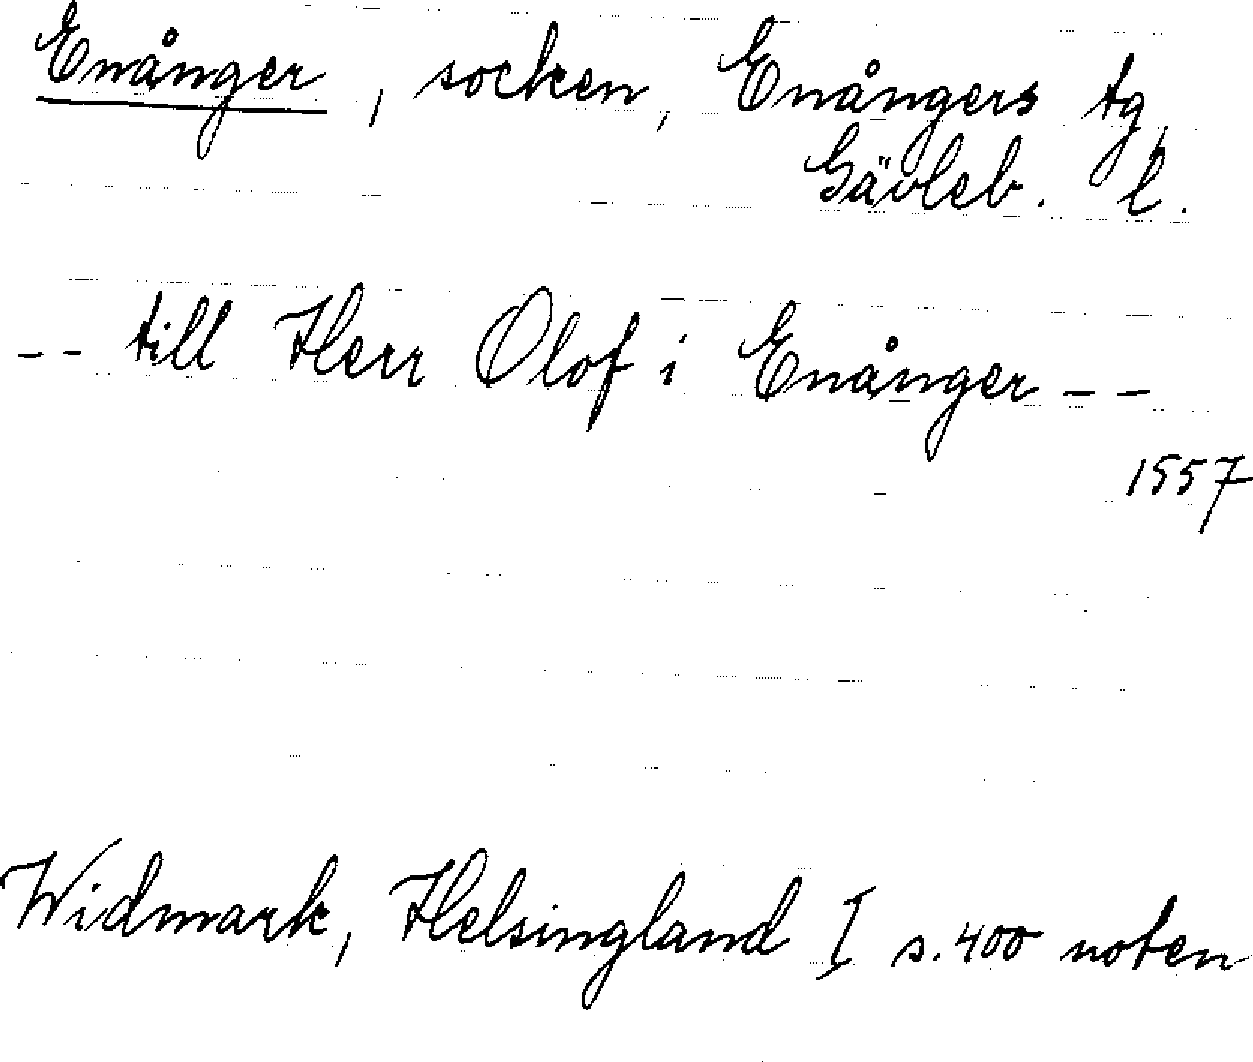 Enånger, socken, Enångers tg,
Gävleb. l.
-- till Herr Olof i Enånger --
1557
Widmark, Helsingland I s. 400 noten